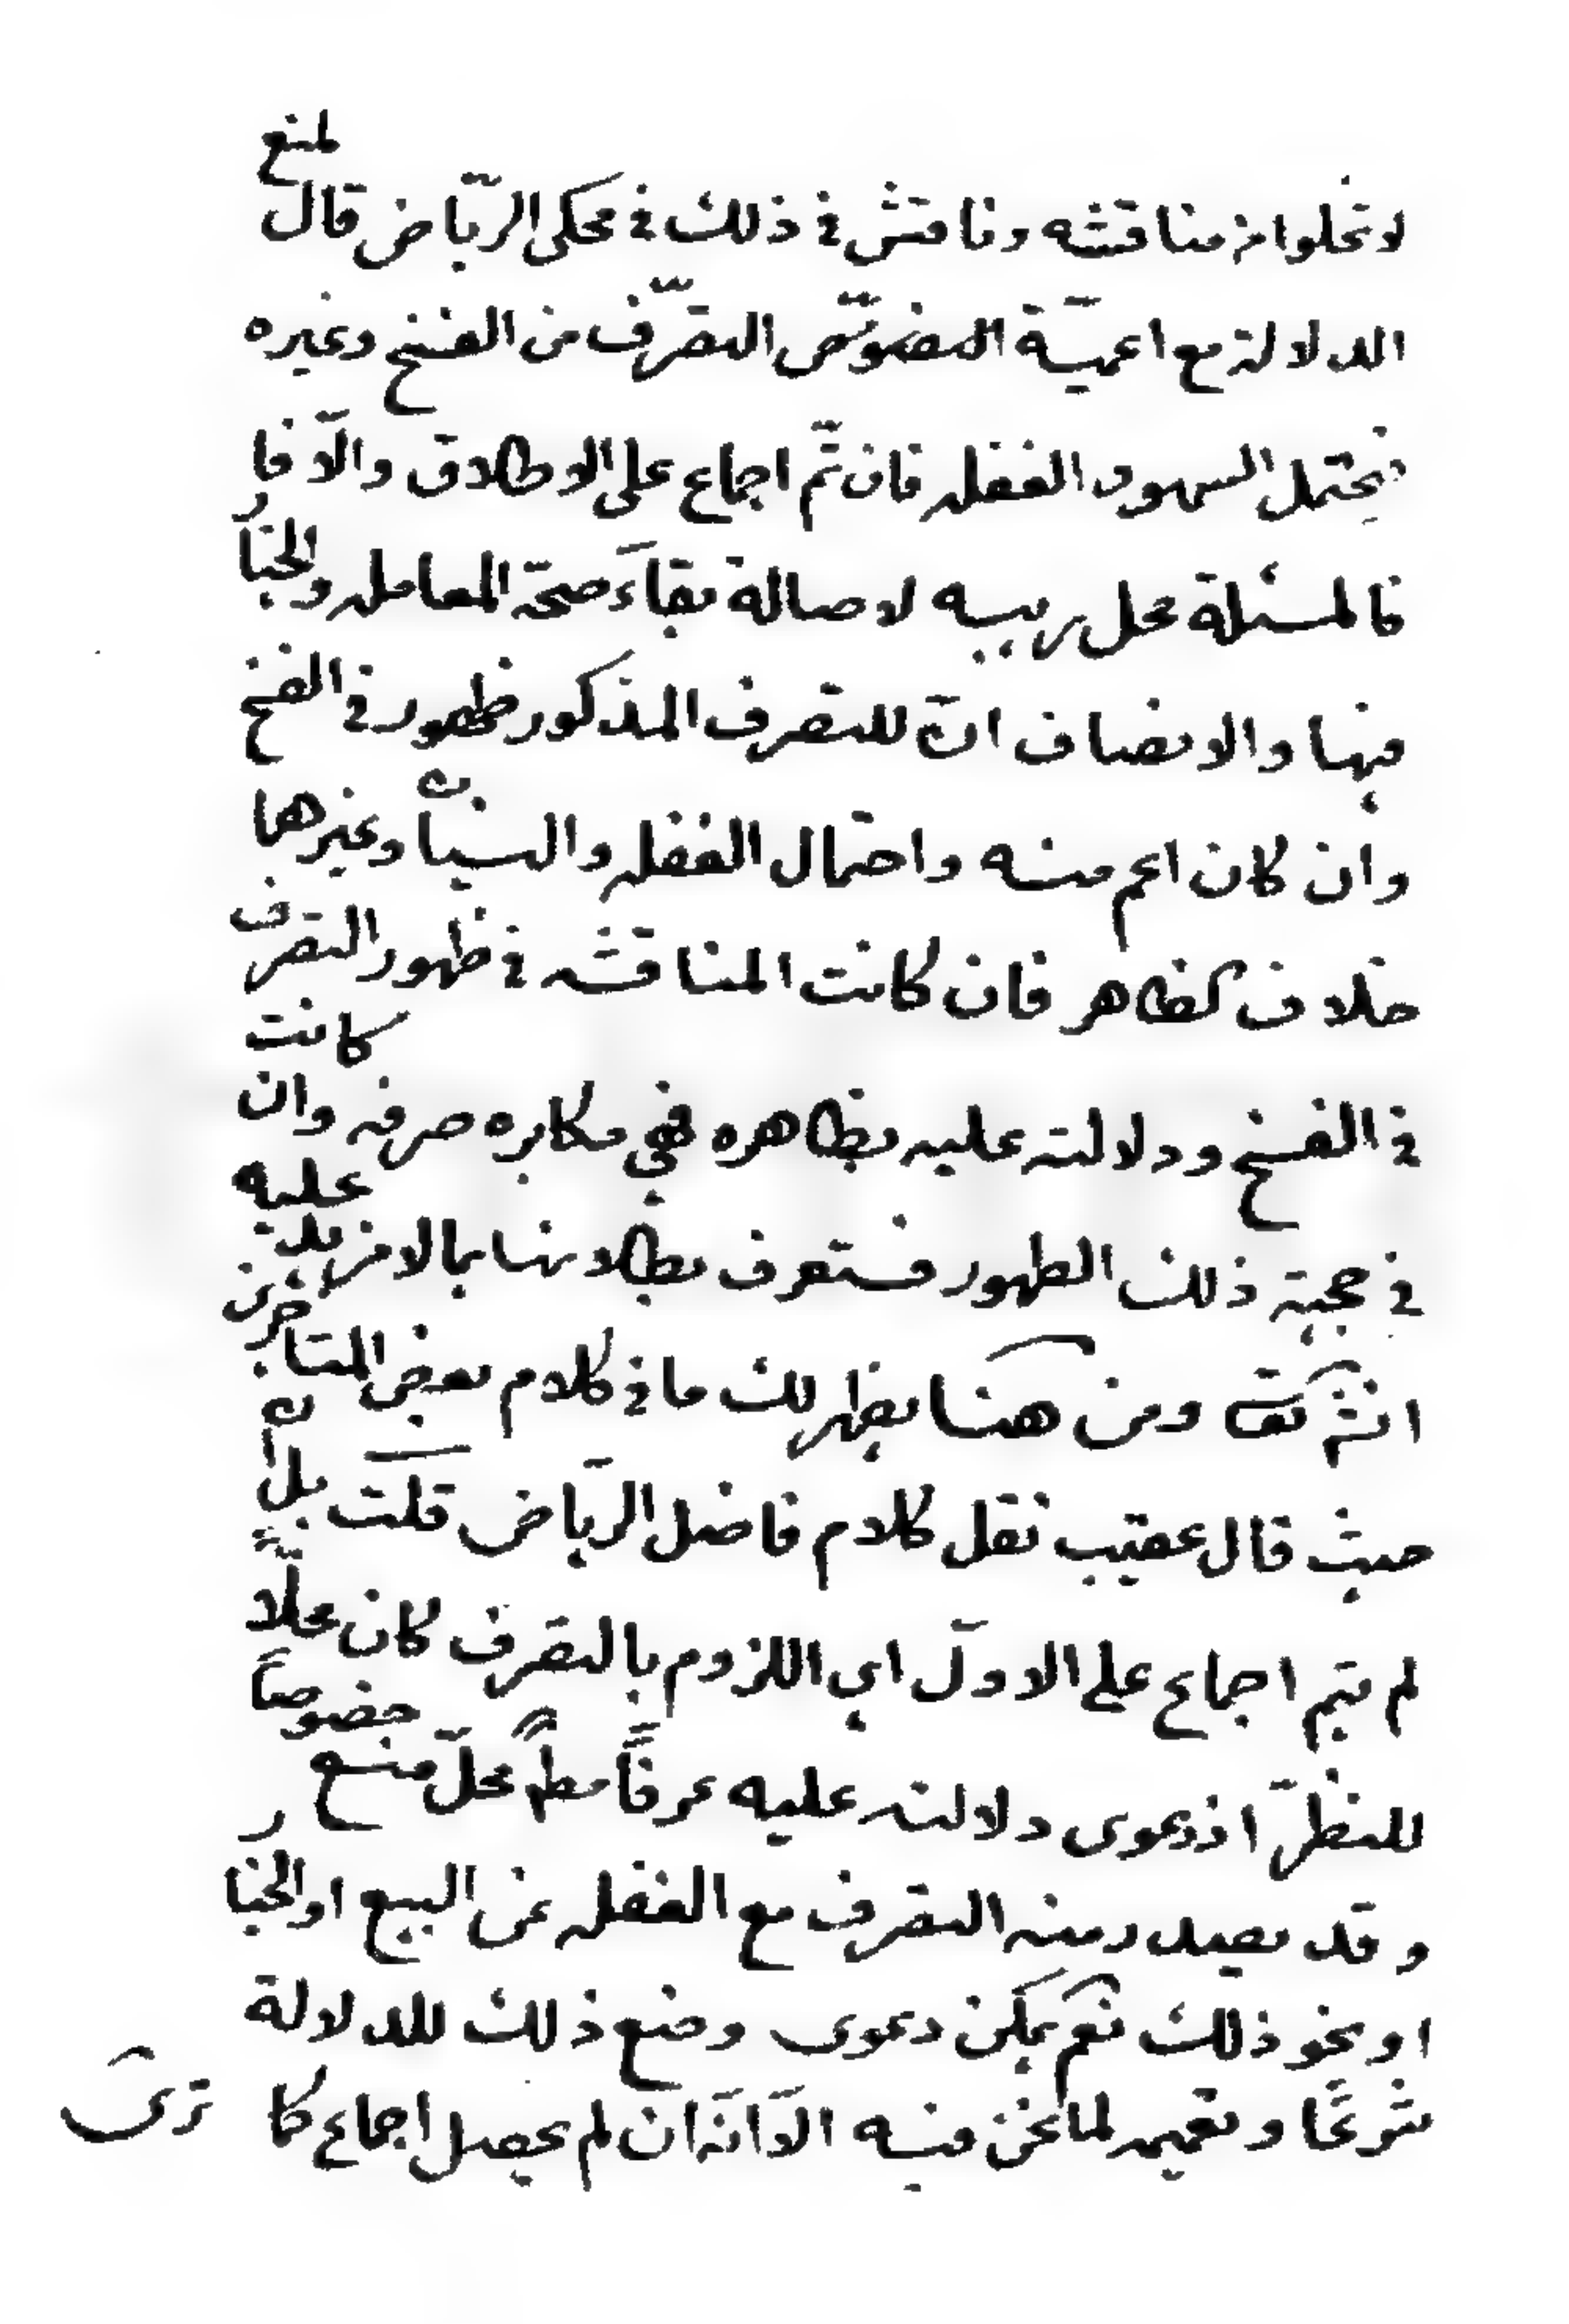 لا تخلوا من مناقشه وناقش في ذلك في محكى الرّياض قال لمنع
الدلالة مع اعميّة التصرّف من الفسخ وغيره
فيحتمل السهو والغفله فان تمّ اجماع على الاطلاق والّا فا
فالمسئلة محل ريبه لاصالة بقاء صحة المعامله والخيار
فيها والانصاف انّ للتصرف المذكور ظهور في الفسخ
وان كان اعم منه واحتمال الغفله والنسيان وغيرها
خلاف الظاهر فان كانت المناقشه في ظهور التصرف
في الفسخ ودلالته عليه بظاهره فهي مكابره صرفه وان كانت
في حجية ذلك الظهور فستعرف بطلانها بما لا مزيد عليه
انش تعالى ومن هنا يظهر لك ما في كلام بعض المتاخرين
حيث قال عقيب نقل كلام فاضل الريّاض قلت بل ان
لم يتم اجماع على الاوّل اي اللزوم بالتصرف كان محلّاً
للنظر اذ دعوى دلالته عليه عرفاً مط محلّ منع خصوصاً
وقد يصدر منه التصرف مع الغفله عن البيع او الخيار
او نحو ذلك نعم يمكن دعوى وضع ذلك للدلالة
شرعًا وتعميمه لما نحن فيه الّا انّه ان لم يحصل اجماع كما ترى